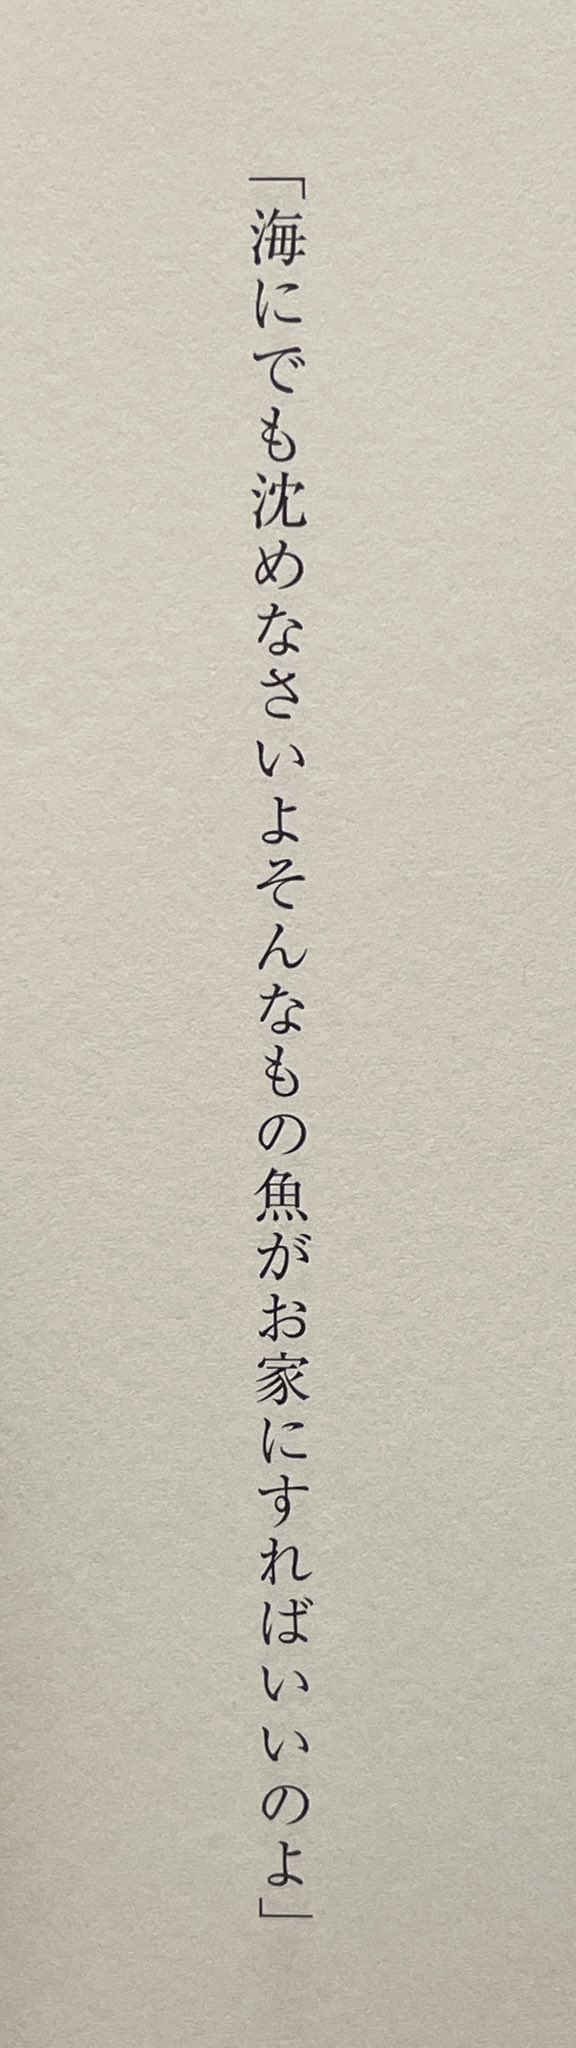 「海にでも沈めなさいよそんなもの魚がお家にすればいいのよ」